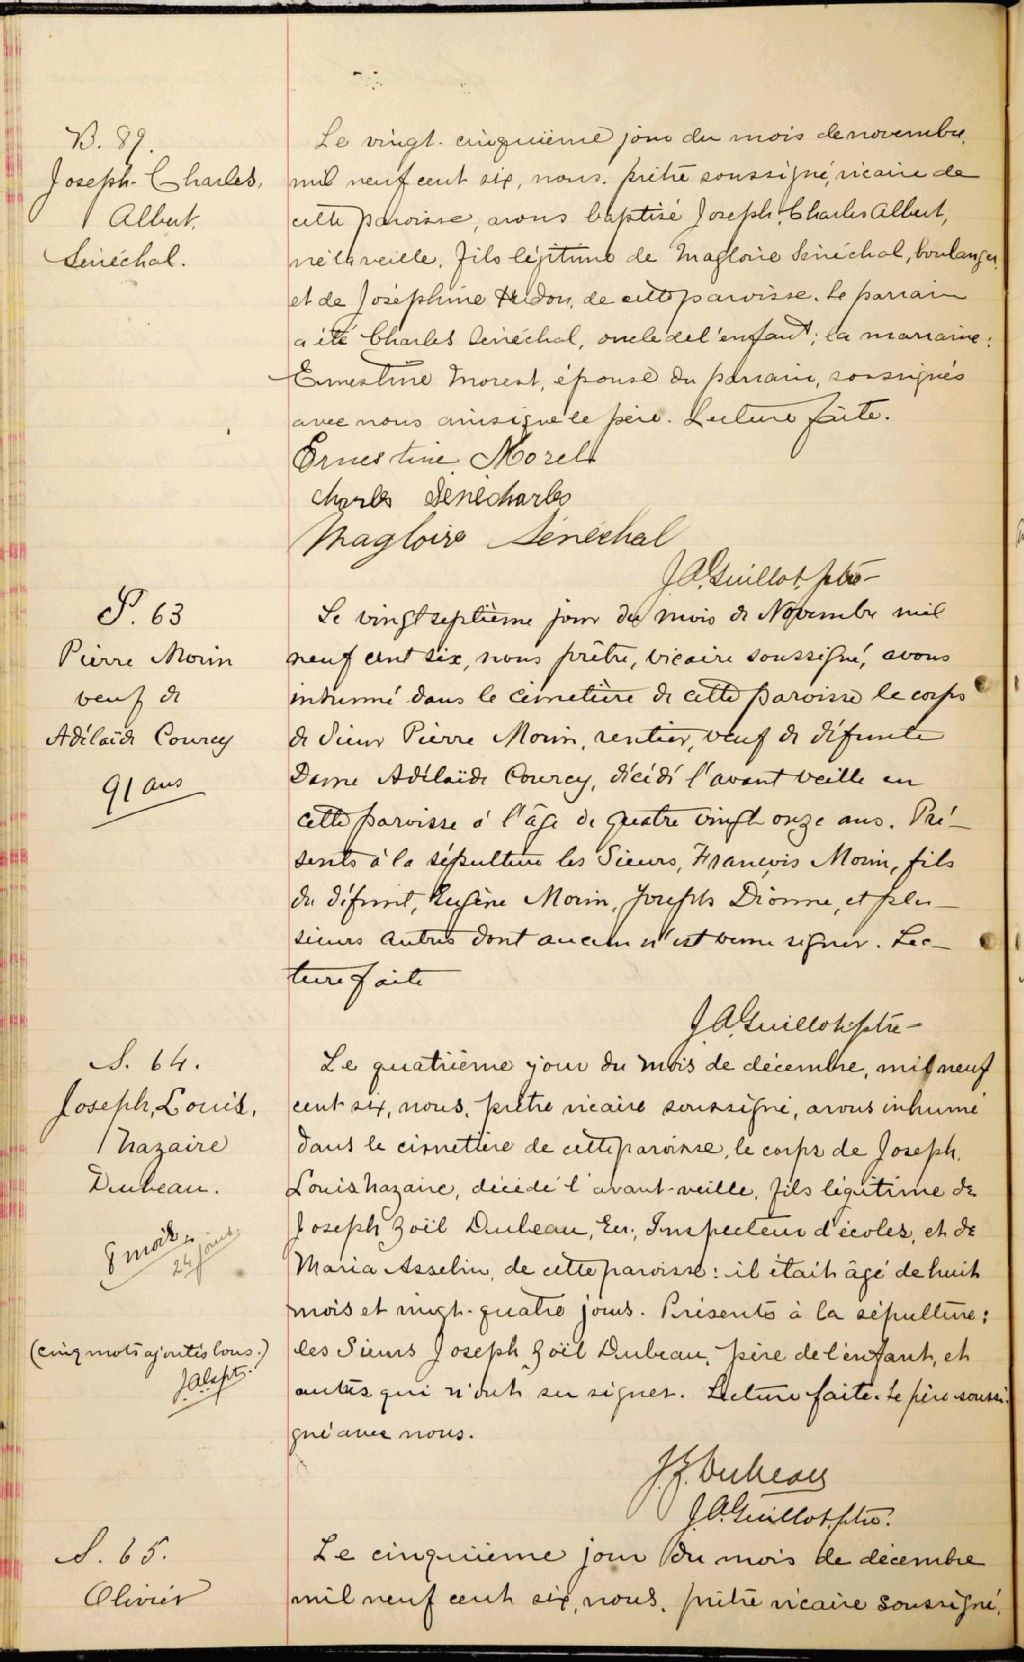 B. 89.
Joseph-Charles,
Albert,
Sénéchal.
Le vingt-cinquième jour du mois de novembre,
mil neuf cent six, nous, prêtre soussigné, vicaire de
cette paroisse, avons baptisé Joseph-Charles Albert,
né la veille, fils légitime de Magloire Sénéchal, boulanger
et de Joséphine Hudon, de cette paroisse. Le parrain
a été Charles Sénéchal, oncle de l'enfant; la marraine:
Ernestine Morest, épouse du parrain, soussignés
avec nous ainsi que le père. Lecture faite.
Ernestine Morel
Charles Sénécharles
Magloire Sénéchal
J.A. Guillot, ptre-
S. 63
Pierre Morin
veuf de
Adélaïde Courcy
91 ans
Le vingt septième jour du mois de Novembre mil
neuf cent six, nous prêtre, vicaire soussigné, avons
inhumé dans le cimetière de cette paroisse le corps
de Sieur Pierre Morin, rentier, veuf de défunte
Dame Adélaïde Courcy, décédé l'avant veille en
cette paroisse à l'âge de quatre vingt onze ans. Pré-
sents à la sépulture les Sieurs, François Morin, fils
du défunt, Eugène Morin, Joseph Dionne, et plu-
sieurs autres dont aucun n'est venu signer. Lec-
ture faite
J.A. Guillot, ptre-
S. 64.
Joseph, Louis,
Nazaire
Dubeau.
8 mois,
24 jours
(cinq mots ajoutés bons.)
J.A.G. pt.
Le quatrième jour du mois de décembre, mil neuf
cent six, nous, prêtre vicaire soussigné, avons inhumé
dans le cimetière de cette paroisse, le corps de Joseph,
Louis Nazaire, décédé l'avant-veille, fils légitime de
Joseph Zoël Dubeau, Ecr., Inspecteur d'écoles, et de
Maria Asselin, de cette paroisse: il était âgé de huit
mois et vingt-quatre jours. Présents à la sépulture:
les Sieurs Joseph Zoël Dubeau, père de l'enfant, et
autres qui n'ont su signer. Lecture faite. Le père soussi-
gné avec nous.
J.Z. Dubeau
J.A. Guillot, ptre.
S. 65.
Olivier
Le cinquième jour du mois de décembre
mil neuf cent six, nous, prêtre vicaire soussigné,